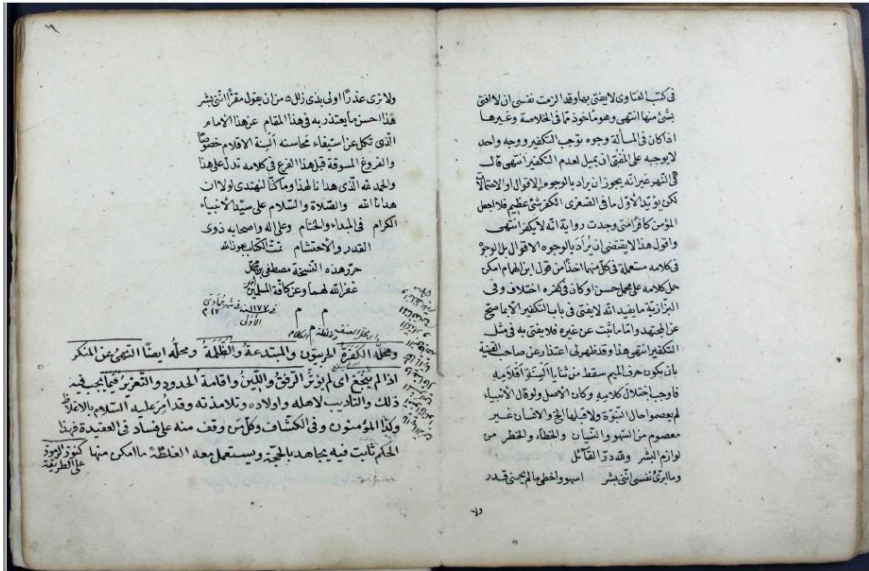 فى كتب الفتاوى لا يفتى بها وقد الزمت نفسى ان لا افتى
بشئ منها انتهى وهو مأخوذ مما فى الخلاصة وغيرها
اذا كان فى المسألة وجوه توجب التكفير ووجه واحد
لا يوجبه على المفتى ان يميل لعدم التكفير انتهى قال
فى النهر غير انه يجوز ان يراد بالوجوه الاقوال والاحتمالات
لكن يؤيد الاول ما فى الصغرى الكفر شئ عظيم فلا اجعل
المؤمن كافرا متى وجدت رواية انه لا يكفر انتهى
واقول هذا لا يقتضى ان يراد بالوجوه الاقوال بل الوجوه
فى كلامه مستعملة فى كل منهما اخذا من قول ابن الهمام امكن
حمل كلامه على محمل حسن او كان فى كفره اختلاف وفى
البزازية ما يفيد انه لا يفتى فى باب التكفير الا بما صح
عن المجتهد واما ما ثبت عن غيره فلا يفتى به فى مثل
التكفير انتهى هذا وقد ظهر لى اعتذار عن صاحب القنية
بان يكون حرف الميم سقط من ثنايا ألسنة اقلامه
فاوجب اختلال كلامه وكان الاصل ولو قال الانبياء
لم يعصوا حال النبوة ولا قبلها الخ والانسان غير
معصوم من السهو والنسيان والخطاء والخطر من
لوازم البشر ولله در القائل
وما ابرئ نفسى اننى بشر اسهو واخطى ما لم يحمنى قدر
ولا
ولا ترى عذرا اولى بذى زلل من ان يقول مقرا اننى بشر
هذا احسن ما يعتذر به فى هذا المقام عن هذا الامام
الذى تكل عن استيفاء محاسنه ألسنة الاقلام خصوصا
والفروع المسوقة قبل هذا الفرع فى كلامه تدل على هذا
والحمد لله الذى هدانا لهذا وما كنا لنهتدى لولا ان
هدانا الله والصلاة والسلام على سيد الانبياء
الكرام فى المبداء والختام وعلى اله واصحابه ذوى
القدر والاحتشام تمت الكتاب بعون الله
حرر هذه النسخة مصطفى بن محمد
غفر الله لهما وعن كافة المسلمين
م م
م
ومحله الكفرة المربون والمبتدعة والظلمة ومحله ايضا النهى عن المنكر
اذا لم ينجع اى لم يؤثر الرفق واللين واقامة الحدود والتعزير فيما يجب فيه
ذلك والتأديب لاهله واولاده وتلامذته وقد امر عليه السلام بالاغلاظ
وكذا المؤمنون وفى الكشاف وكل من وقف منه على فساد فى العقيدة فهذا
الحكم ثابت فيه يجاهد بالحجة ويستعمل معه الغلظة ما امكن منها
على الطريقة